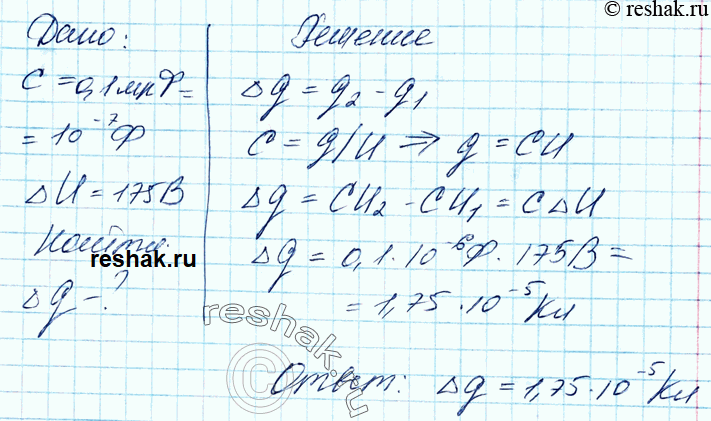 © reshak.ru
Дано:
C = 0,1 мкФ =
= 10⁻⁷ Ф
ΔU = 175 В
Найти:
reshak.ru
Δq - ?
Решение
Δq = q₂ - q₁
C = q/U ⇒ q = CU
Δq = CU₂ - CU₁ = CΔU
Δq = 0,1 · 10⁻⁶ Ф · 175 В =
= 1,75 · 10⁻⁵ Кл
reshak.ru
©
Ответ: Δq = 1,75 · 10⁻⁵ Кл